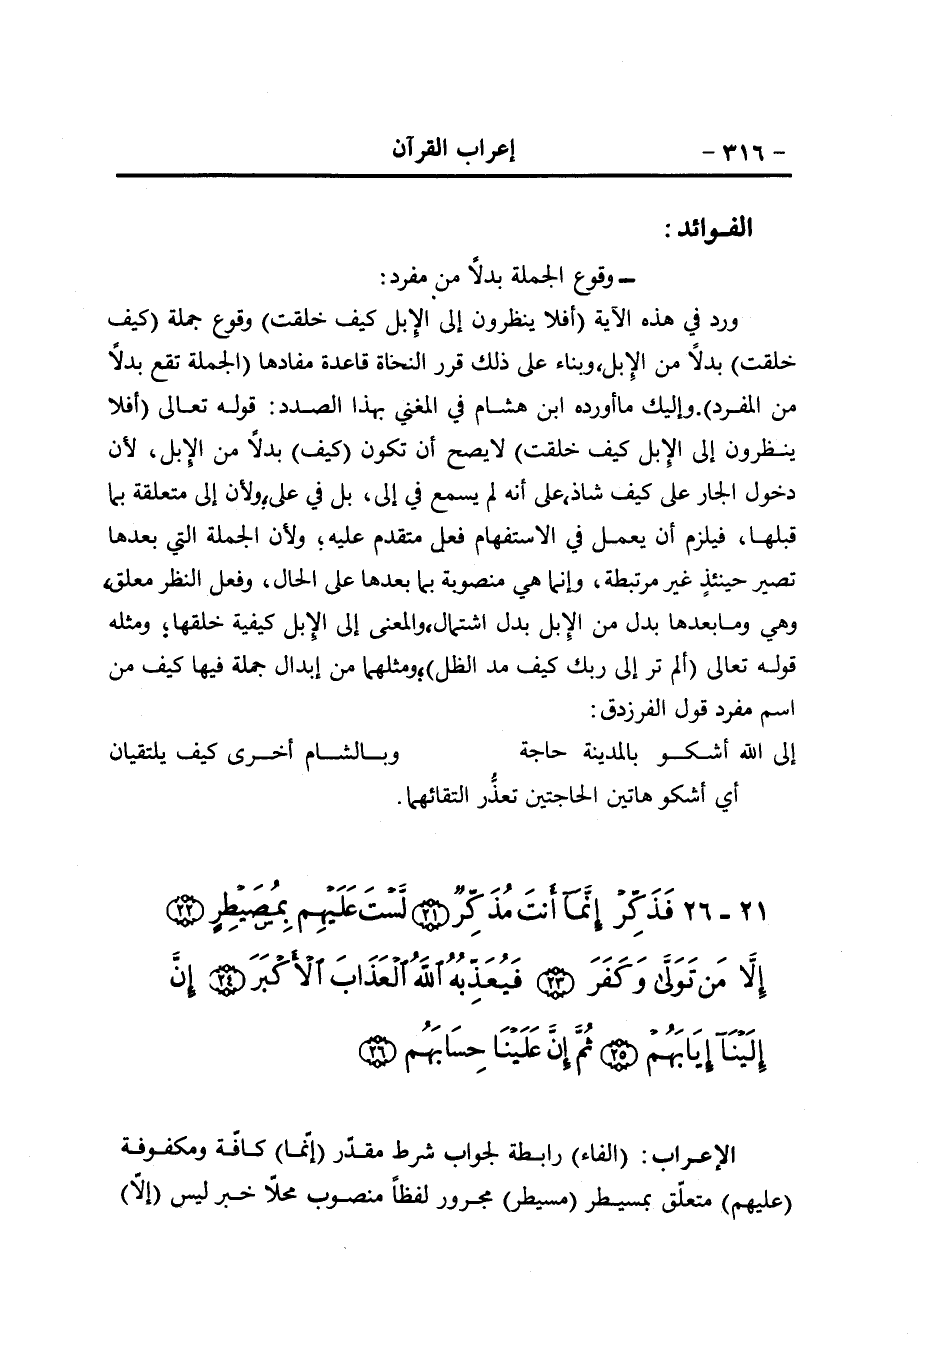 - ٣١٦ - إعراب القرآن
الفـوائد :
ـ وقوع الجملة بدلاً من مفرد :
ورد في هذه الآية (أفلا ينظرون إلى الإبل كيف خلقت) وقوع جملة (كيف
خلقت) بدلاً من الإبل،وبناء على ذلك قرر النحاة قاعدة مفادها (الجملة تقع بدلاً
من المفـرد).وإليك ماأورده ابن هشام في المغني بهذا الصـدد: قولـه تعـالى (أفلا
ينـظرون إلى الإبل كيف خلقت) لايصح أن تكون (كيف) بدلاً من الإبل، لأن
دخول الجار على كيف شاذ،على أنه لم يسمع في إلى، بل في على،ولأن إلى متعلقة بما
قبلهـا، فيلزم أن يعمـل في الاستفهام فعل متقدم عليه؛ ولأن الجملة التي بعدها
تصير حينئذٍ غير مرتبطة، وإنما هي منصوبة بما بعدها على الحال، وفعل النظر معلق،
وهي ومـابعدها بدل من الإبل بدل اشتمال،والمعنى إلى الإبل كيفية خلقها؛ ومثله
قولـه تعالى (ألم تر إلى ربك كيف مد الظل)؛ومثلهما من إبدال جملة فيها كيف من
اسم مفرد قول الفرزدق :
إلى الله أشـكـو بالمدينة حاجة وبـالشـام أخـرى كيف يلتقيان
أي أشكو هاتين الحاجتين تعذُّر التقائهما.
٢١ - ٢٦ فَذَكِّرْ إِنَّمَآ أَنتَ مُذَكِّرٌ ٢١ لَّسْتَ عَلَيْهِم بِمُصَيْطِرٍ ٢٢
إِلَّا مَن تَوَلَّىٰ وَكَفَرَ ٢٣ فَيُعَذِّبُهُ ٱللَّهُ ٱلْعَذَابَ ٱلْأَكْبَرَ ٢٤ إِنَّ
إِلَيْنَآ إِيَابَهُمْ ٢٥ ثُمَّ إِنَّ عَلَيْنَا حِسَابَهُم ٢٦
الإعـراب: (الفاء) رابـطة لجواب شرط مقـدّر (إنّمـا) كـافّـة ومكفـوفـة
(عليهم) متعلّق بمسيـطر (مسيطر) مجرور لفظاً منصوب محلاً خبر ليس (إلاّ)